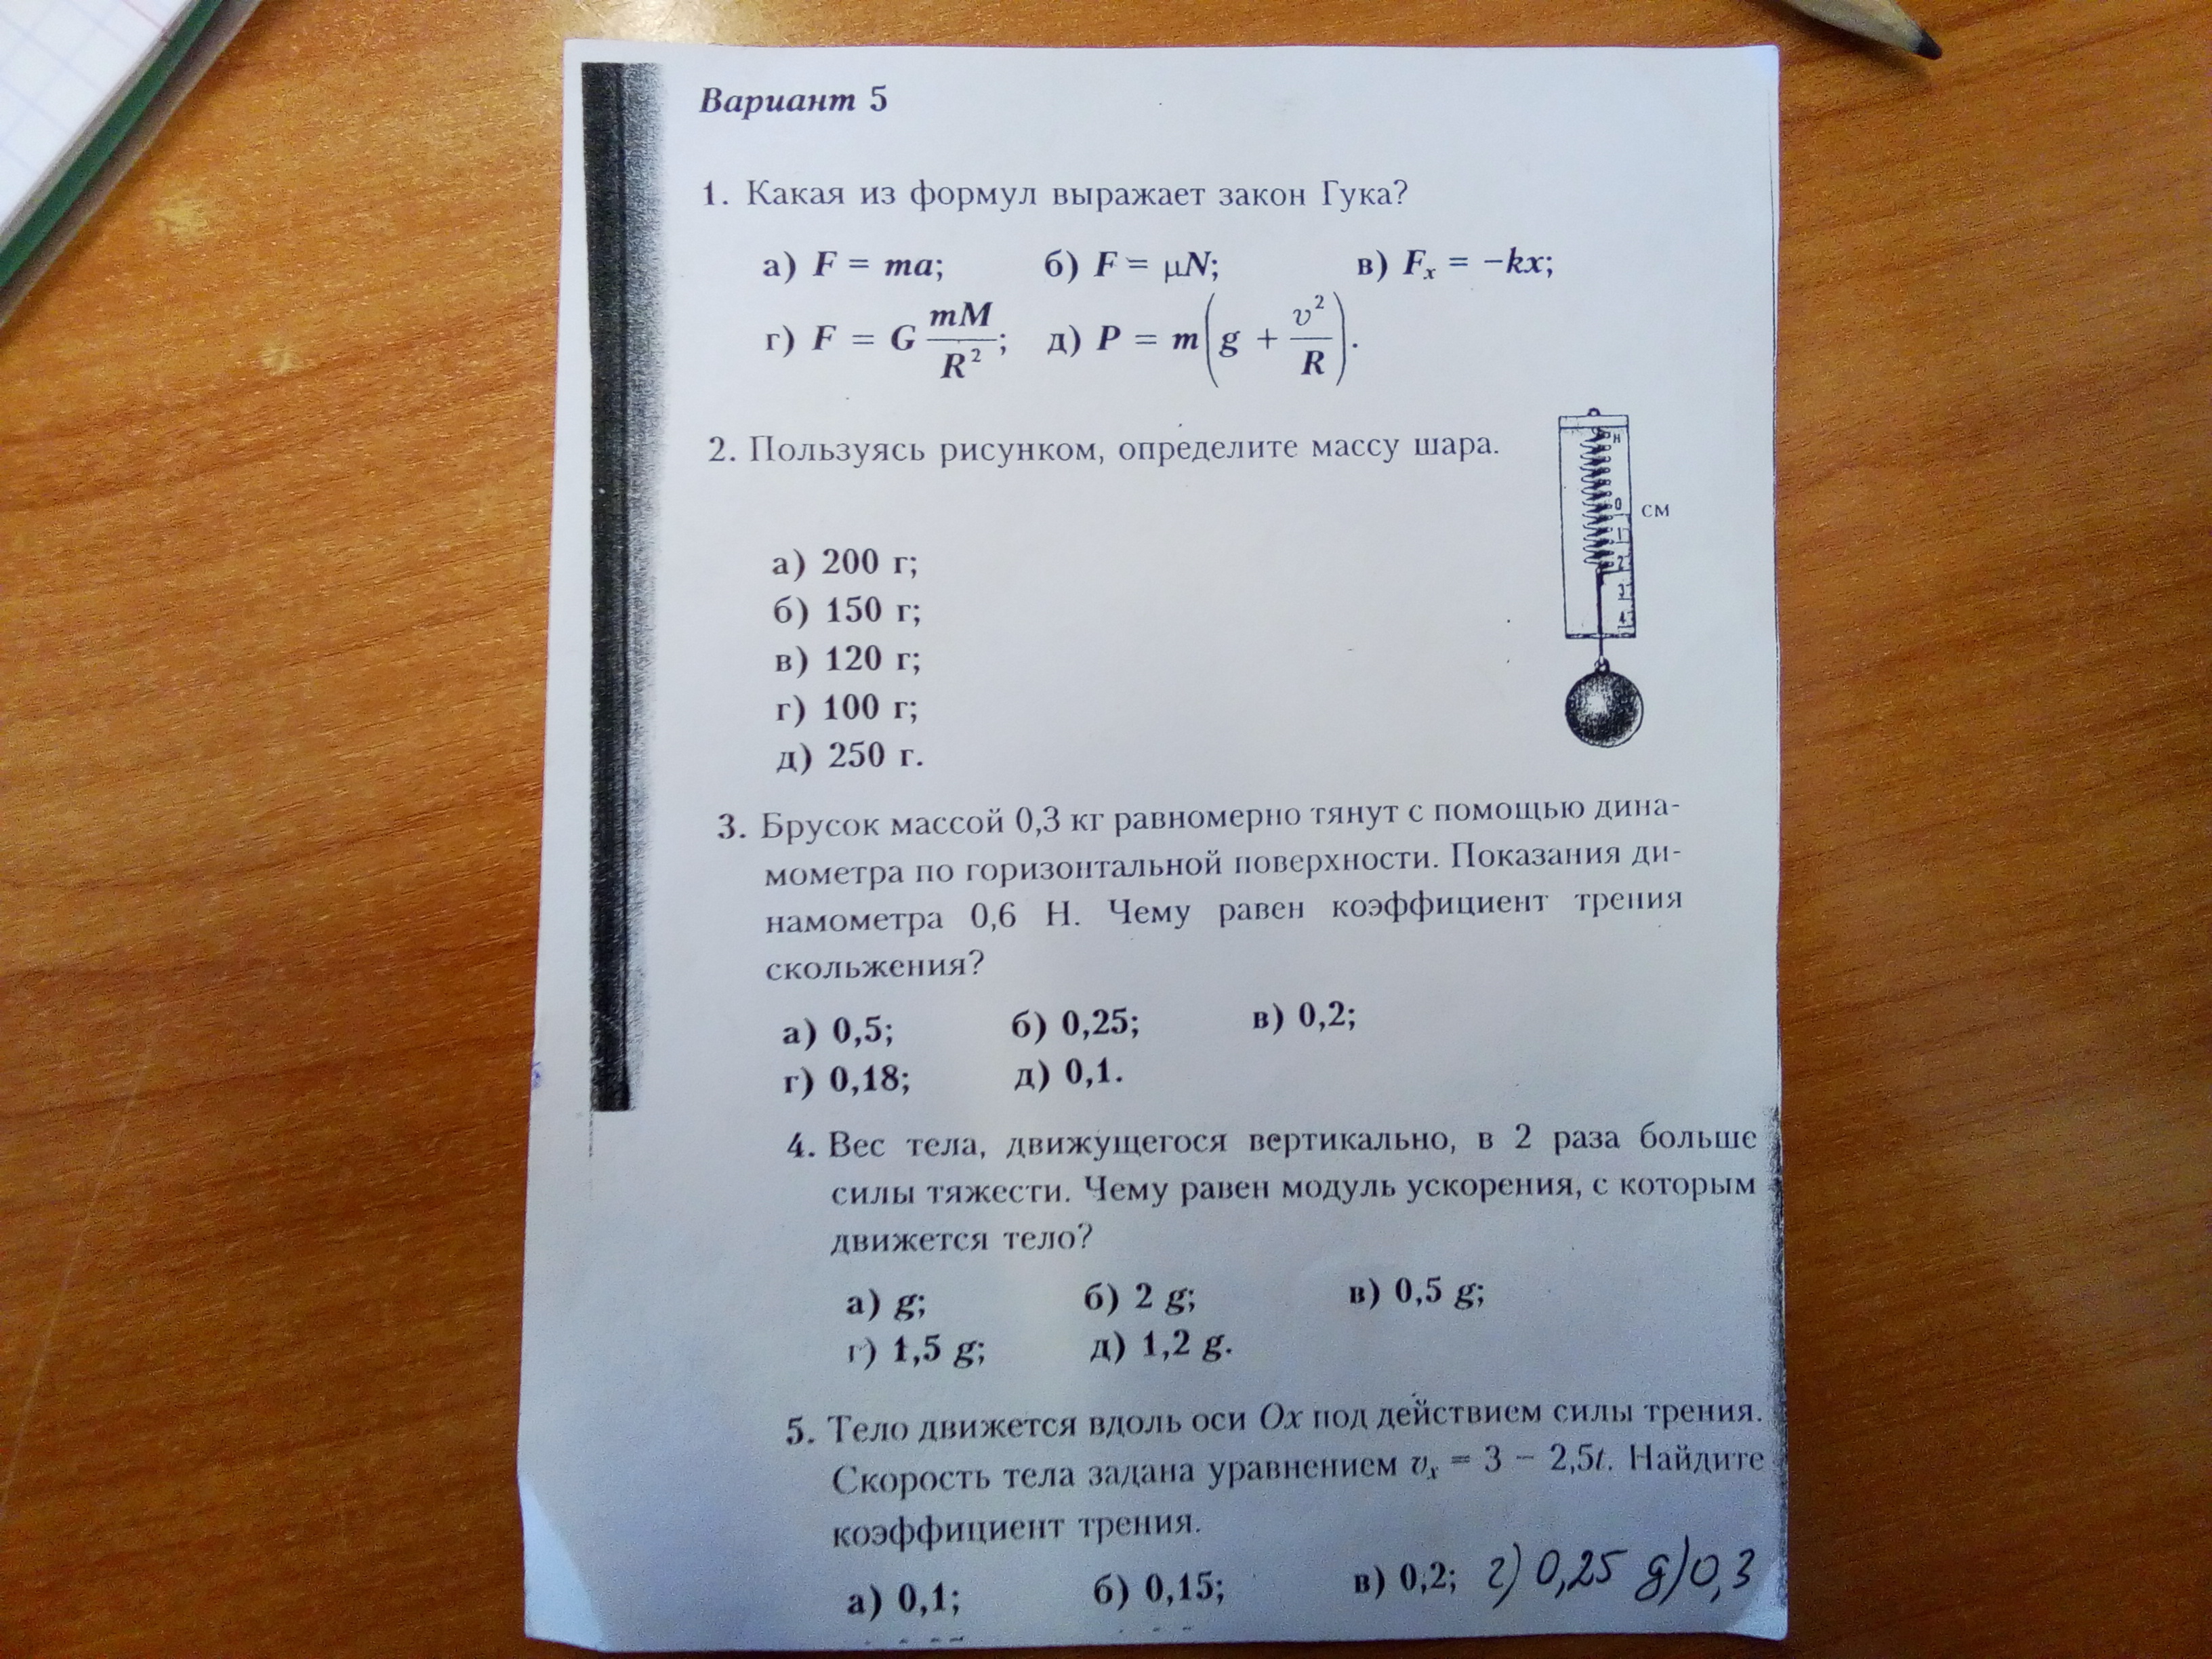 Вариант 5
1. Какая из формул выражает закон Гука?
а) F = ma; б) F = μN; в) Fₓ = −kx;
г) F = G mM/R²; д) P = m(g + v²/R).
2. Пользуясь рисунком, определите массу шара.
Н
0 см
1
2
3
4
а) 200 г;
б) 150 г;
в) 120 г;
г) 100 г;
д) 250 г.
3. Брусок массой 0,3 кг равномерно тянут с помощью дина-
мометра по горизонтальной поверхности. Показания ди-
намометра 0,6 Н. Чему равен коэффициент трения
скольжения?
а) 0,5; б) 0,25; в) 0,2;
г) 0,18; д) 0,1.
4. Вес тела, движущегося вертикально, в 2 раза больше
силы тяжести. Чему равен модуль ускорения, с которым
движется тело?
а) g; б) 2 g; в) 0,5 g;
г) 1,5 g; д) 1,2 g.
5. Тело движется вдоль оси Ox под действием силы трения.
Скорость тела задана уравнением vₓ = 3 − 2,5t. Найдите
коэффициент трения.
а) 0,1; б) 0,15; в) 0,2; г) 0,25 д) 0,3